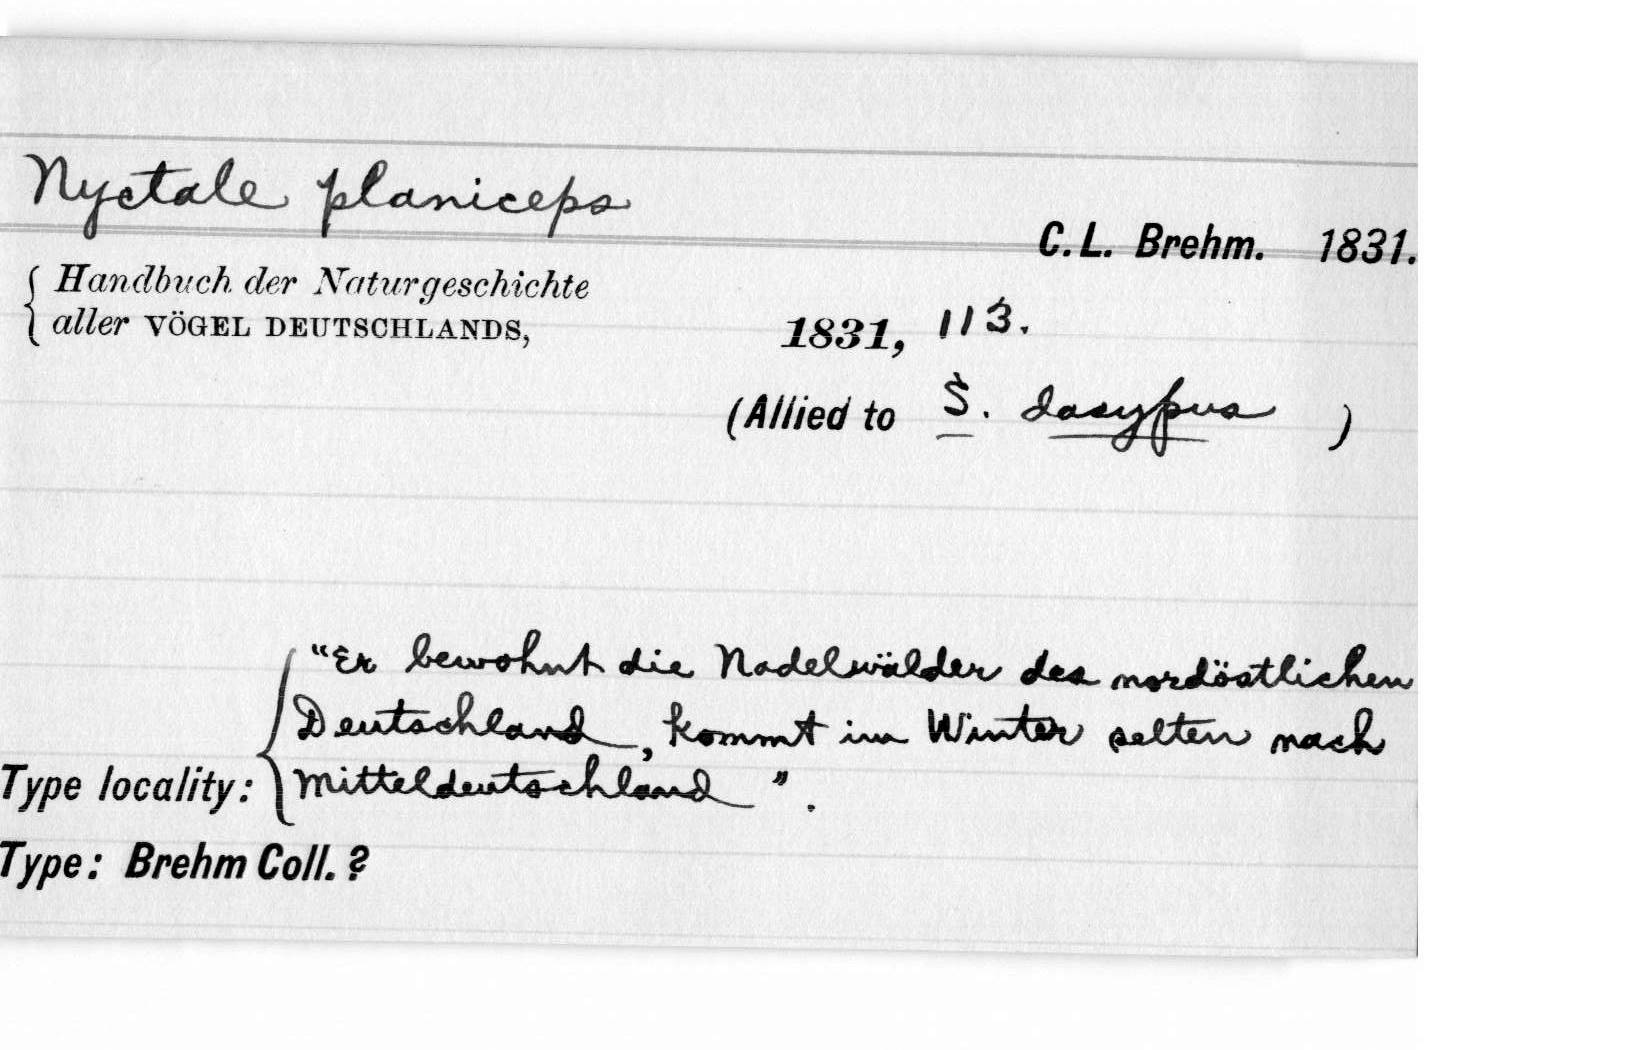 Nyctale planiceps
C.L. Brehm. 1831.
Handbuch der Naturgeschichte
aller VÖGEL DEUTSCHLANDS,
1831, 113.
(Allied to S. dasypus )
"Er bewohnt die Nadelwälder des nordöstlichen
Deutschland, kommt im Winter selten nach
Type locality: Mitteldeutschland".
Type: Brehm Coll. ?